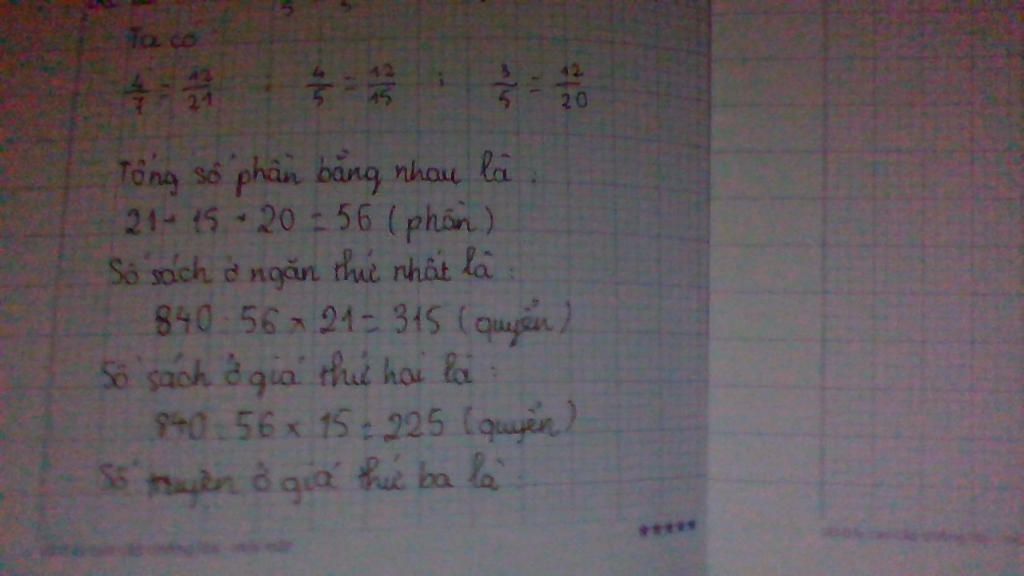 Ta có
4/7 = 12/21 ; 4/5 = 12/15 ; 3/5 = 12/20
Tổng số phần bằng nhau là :
21 + 15 + 20 = 56 (phần)
Số sách ở ngăn thứ nhất là :
840 : 56 x 21 = 315 (quyển)
Số sách ở giá thứ hai là :
840 : 56 x 15 = 225 (quyển)
Số truyện ở giá thứ ba là :